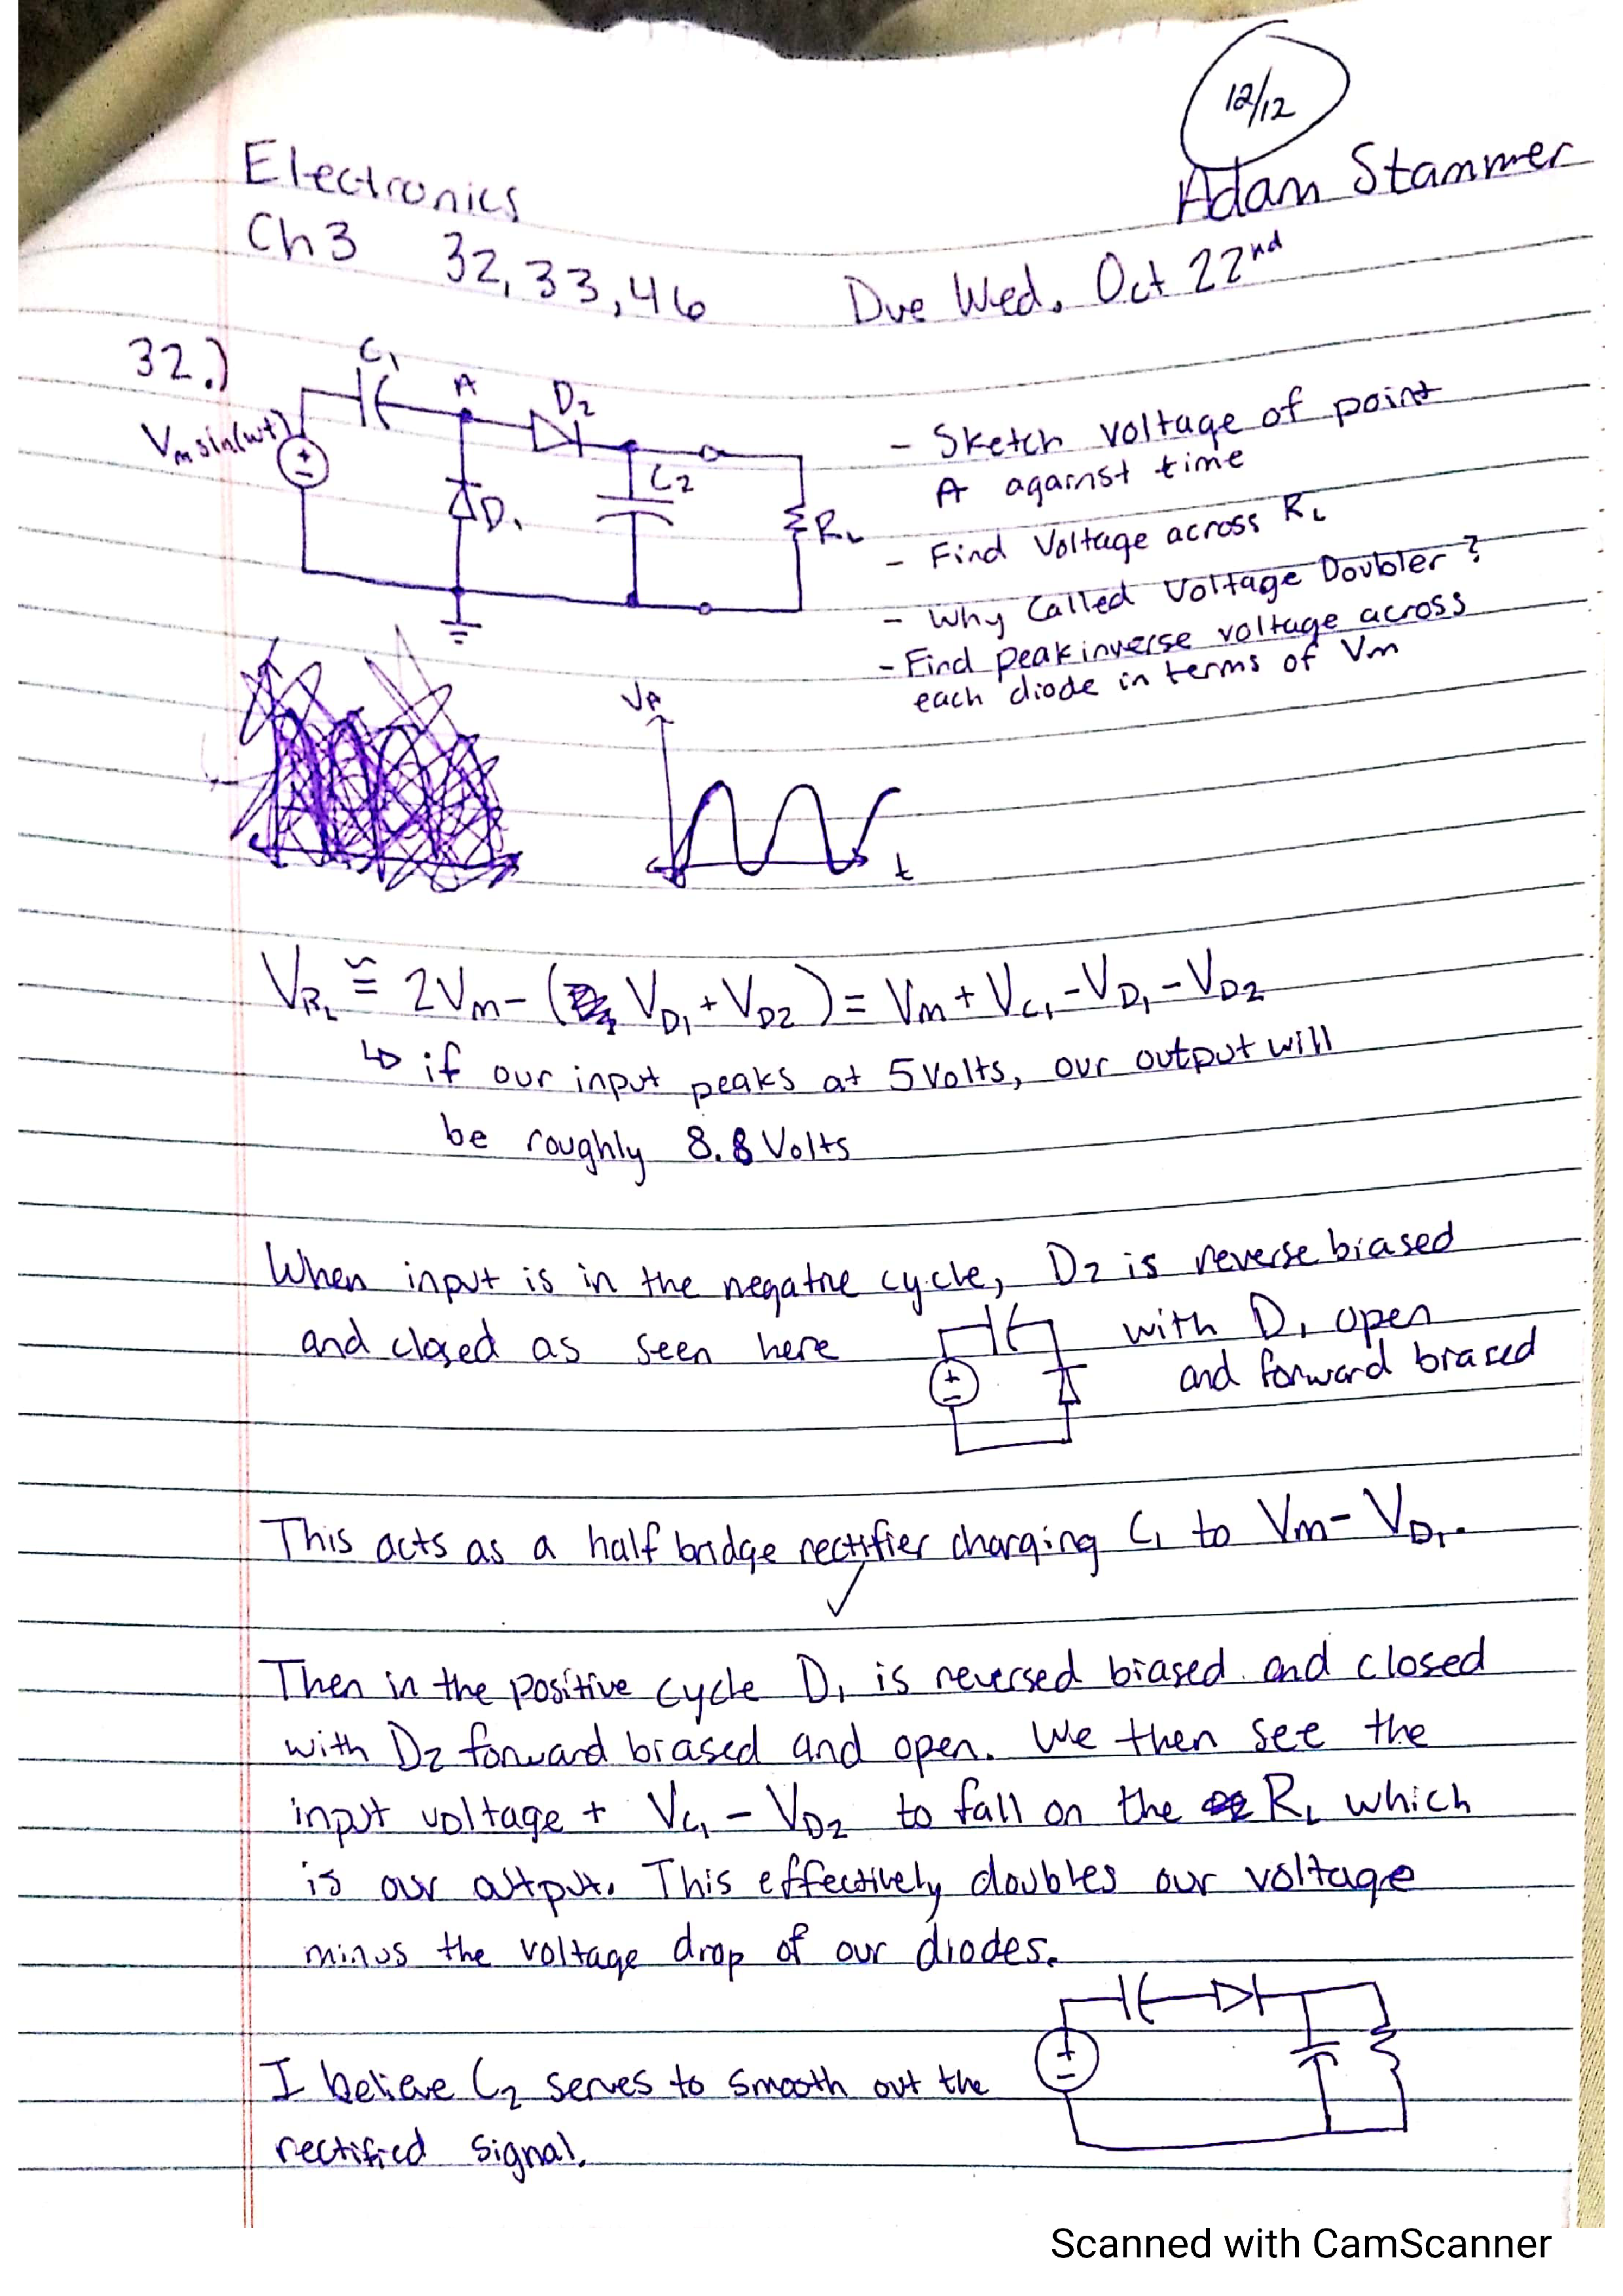 12/12
Electronics
Adam Stammer
Ch3 32,33,46 Due Wed. Oct 22nd
32.)
C1
A
D2
Vm sin(wt)
+
-
C2
D1
RL
- Sketch voltage of point
A against time
- Find Voltage across RL
- Why Called Voltage Doubler?
- Find peak inverse voltage across
each diode in terms of Vm
VA
t
VRL ≅ 2Vm - (VD1 + VD2) = Vm + VC1 - VD1 - VD2
↳ if our input peaks at 5 Volts, our output will
be roughly 8.8 Volts
When input is in the negative cycle, D2 is reverse biased
and closed as seen here with D1 open
+
-
and forward biased
This acts as a half bridge rectifier charging C1 to Vm - VD1.
✓
Then in the positive cycle D1 is reversed biased and closed
with D2 forward biased and open. We then see the
input voltage + VC1 - VD2 to fall on the RL which
is our output. This effectively doubles our voltage
minus the voltage drop of our diodes.
+
-
I believe C2 serves to smooth out the
rectified signal.
Scanned with CamScanner